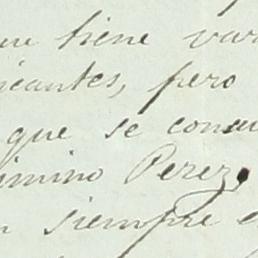 tiene var
icantes, pero
que se cons
imino Perez,
siempre e